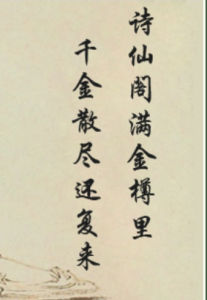 诗仙阁满金樽里
千金散尽还复来